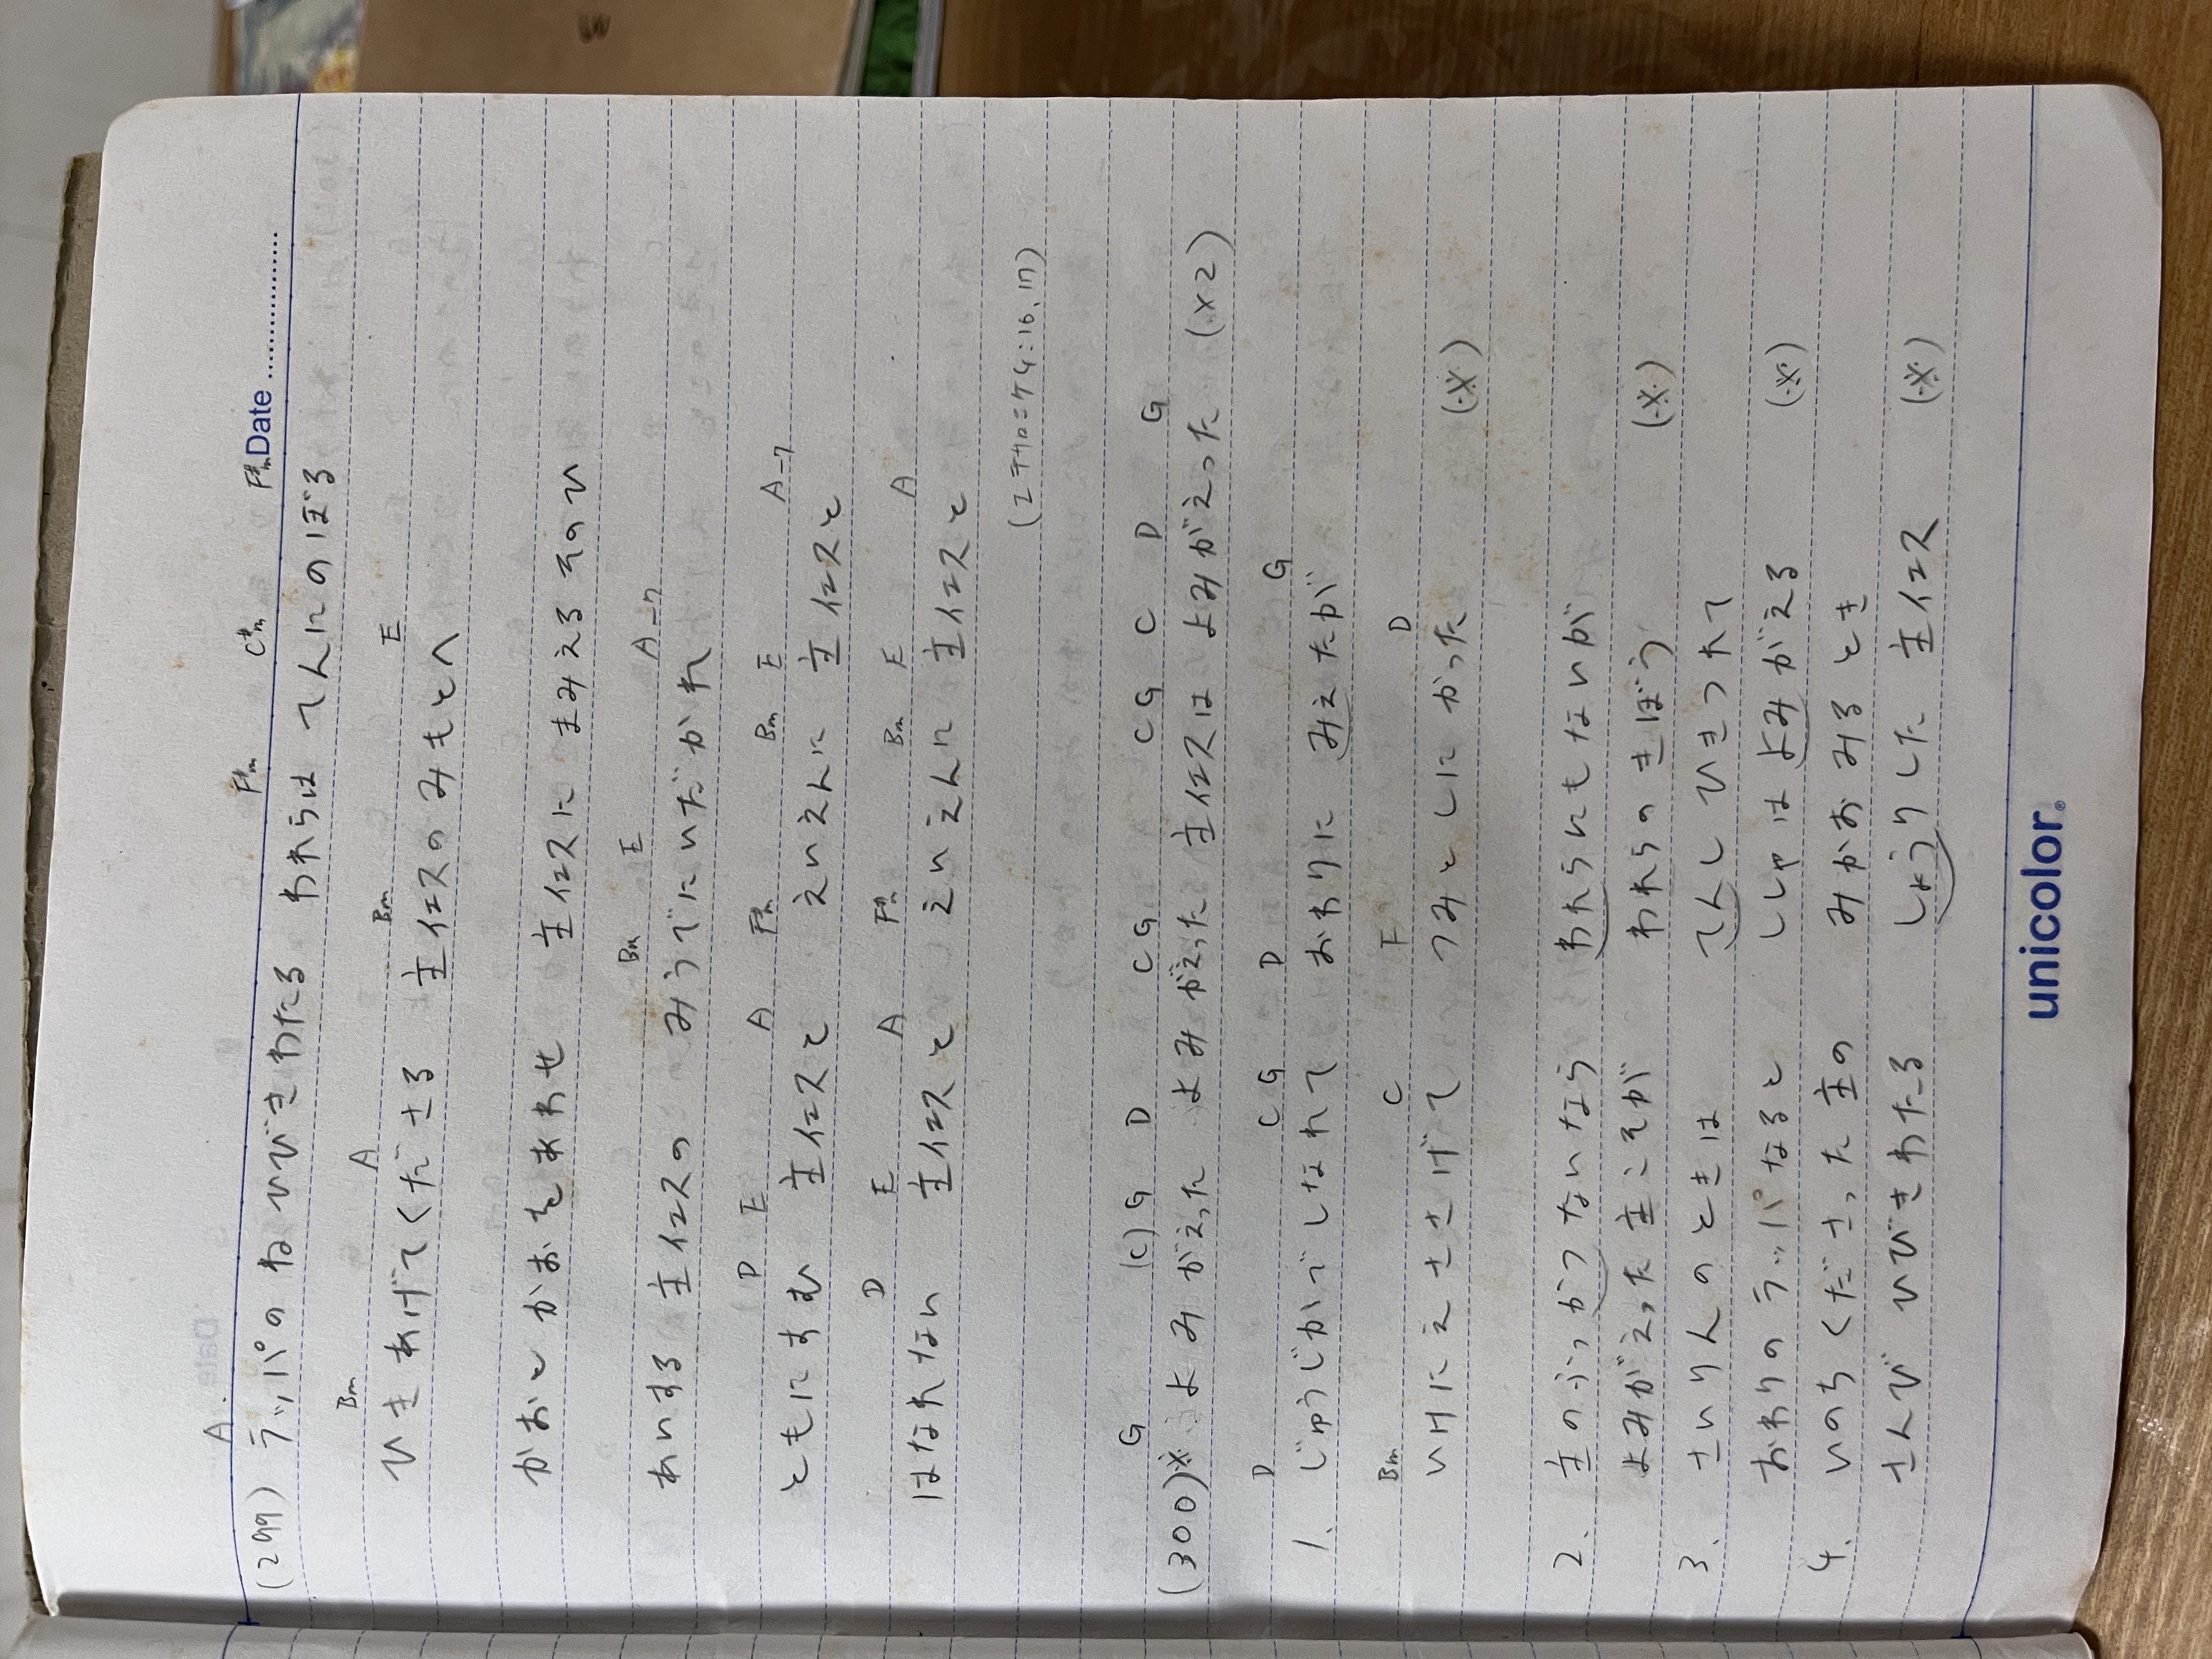 Date
A F#m C#m F#m
(299) ラッパのね ひびきわたる われらは てんにのぼる
Bm A Bm E
ひきあげてくださる 主イエスのみもとへ
かおと かおをあわせ 主イエスに まみえる そのひ
Bm E A-7
あいする 主イエスの みうでにいだかれ
D E A F#m Bm E A-7
ともにすむ 主イエスと えいえんに 主イエスと
D E A F#m Bm E A
はなれない 主イエスと えいえんに 主イエスと
(Iテサロニケ4:16,17)
G (C) G D C G C G C D G
(300)※ よみがえった よみがえった 主イエスは よみがえった (×2)
D C G D G
1、じゅうじかで しなれて おわりに みえたが
Bm C F D
いけにえ ささげて つみとしに かった (※)
2、主のふっかつないなら われらにもないが
よみがえった主こそが われらの きぼう (※)
3、さいりんのときは てんし ひきつれて
おわりの ラッパなると ししゃは よみがえる (※)
4、いのちくださった 主の みかおみるとき
さんび ひびきわたる しょうりした 主イエス (※)
unicolor®